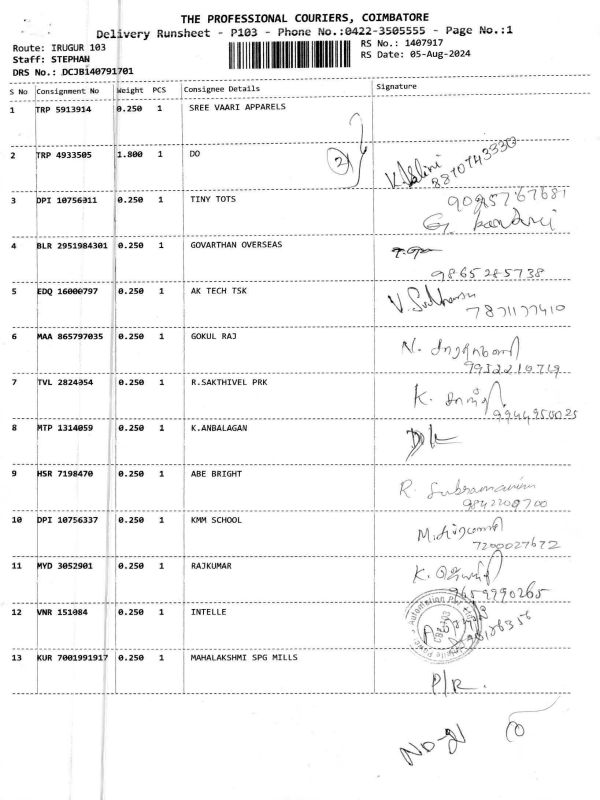 THE PROFESSIONAL COURIERS, COIMBATORE
Delivery Runsheet - P103 - Phone No.:0422-3505555 - Page No.:1
Route: IRUGUR 103
RS No.: 1407917
Staff: STEPHAN
RS Date: 05-Aug-2024
DRS No.: DCJBI40791701
S No Consignment No Weight PCS Consignee Details Signature
1 TRP 5913914 0.250 1 SREE VAARI APPARELS
2 TRP 4933505 1.800 1 DO
8870743330
3 DPI 10756311 0.250 1 TINY TOTS
4 BLR 2951984301 0.250 1 GOVARTHAN OVERSEAS
9865285738
5 EDQ 16000797 0.250 1 AK TECH TSK
7871177410
6 MAA 865797035 0.250 1 GOKUL RAJ
N.
7 TVL 2824054 0.250 1 R.SAKTHIVEL PRK
K.
9944950025
8 MTP 1314059 0.250 1 K.ANBALAGAN
9 HSR 7198470 0.250 1 ABE BRIGHT
R. Subramaniam
9842208700
10 DPI 10756337 0.250 1 KMM SCHOOL
7200027672
11 MYD 3052901 0.250 1 RAJKUMAR
K.
9659990265
12 VNR 151084 0.250 1 INTELLE
13 KUR 7001991917 0.250 1 MAHALAKSHMI SPG MILLS
P/R.